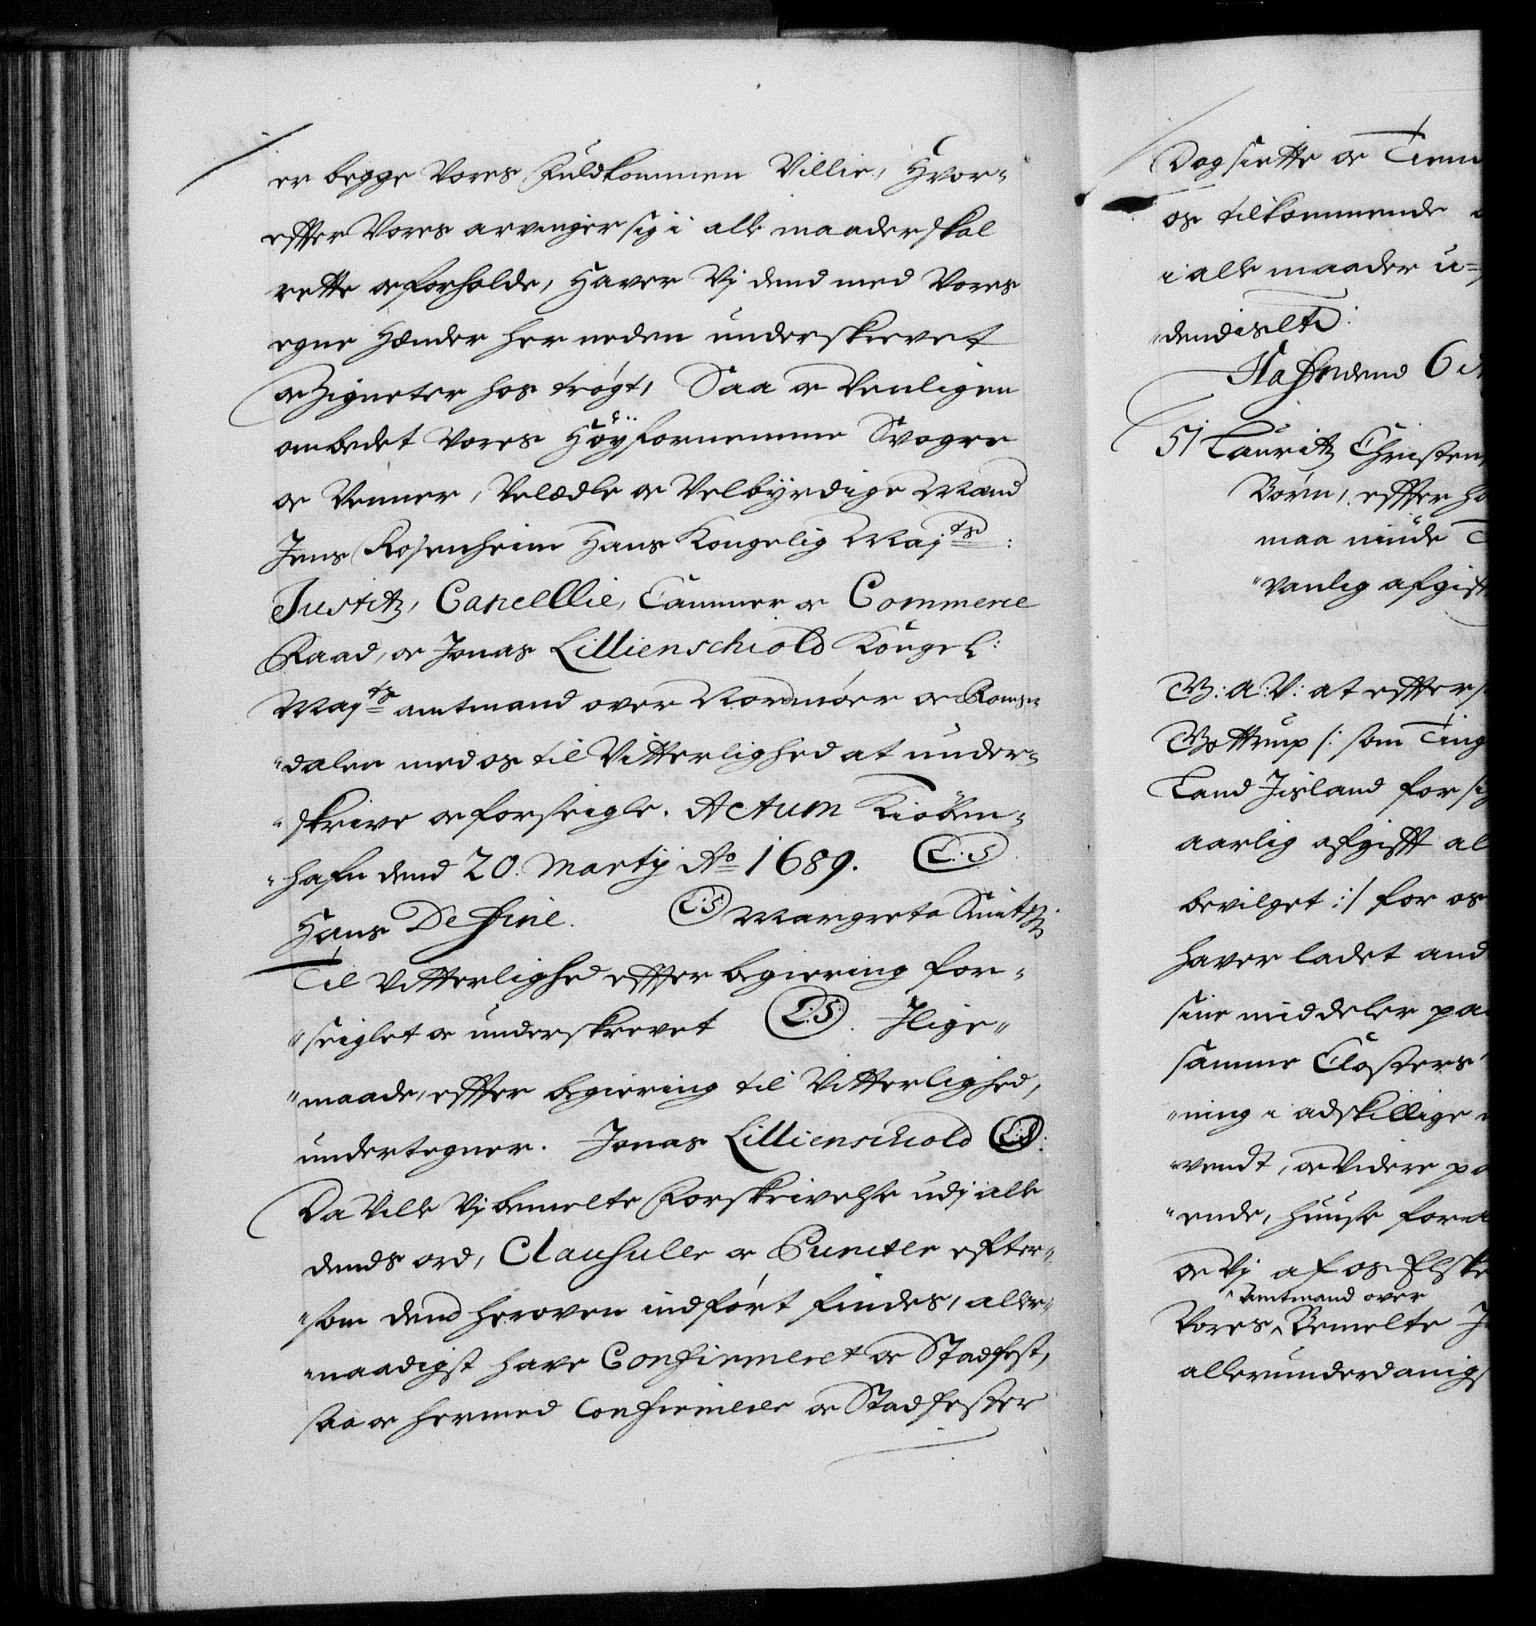 er begge Vores Fuldkommen Villie, Hvor-
effter Vores arvinger sig i alle maader skal
rette oc forholde, Hafver Vj dend med Vores
egne Hænder her neden underskrevet
oc Zigneter hos trøgt, Saa oc Venligen
ombedet Vores Høyfornemme Svogre
oc Venner, Velædle oc Velbyrdige Mand
Jens Rosenheim Hans Kongelig Maj ts:
Justitz, Cancellie, Cammer oc Commerce
Raad, oc Jonas Lillienschiold Kongel:
Maj ts amtmand over Nordmöer oc Roms-
"dalen med os til Vitterlighed at under-
"skrive oc forseigle. Actum Kiöben-
"hafn dend 20. Martij Ao 1689. L:S.
Hans De Hine. L:S Margreta
Til Vitterlighed effter begiering for-
"seiglet oc underskrevet L:S. Ilige-
"maade, effter begiering til Vitterlighed,
undertegner. Jonas Lillienschiold L:S:
Da Ville Vj bemelte Forskrivelse udj alle
dends ord, Clausuler oc Puncter efter-
"som dend heroven indført findes, aller-
"naadigst have Confirmeret oc Stadfest,
saa oc hermed Confirmerer oc Stadfester
Dog siette oc Tiem
os tilkommende
i alle maader u-
"dendislti:
Hafn dend 6
51 Lauritz Christens
Børn, effter ha
maa niude
"vanlig afgift
G: A: V: at effters
Gottrup /: som Ting
Land Jisland for sig
aarlig afgifft al
bevilget :/ for os
hafver ladet and
sine middeler paa
samme Closters
"ning i adskillige
"vendt, oc Videre pa
"ende, huuse fora
oc Vj af os Elske
^ Amtmand over
Vores ^ Bemelte J
allerunderdanigs